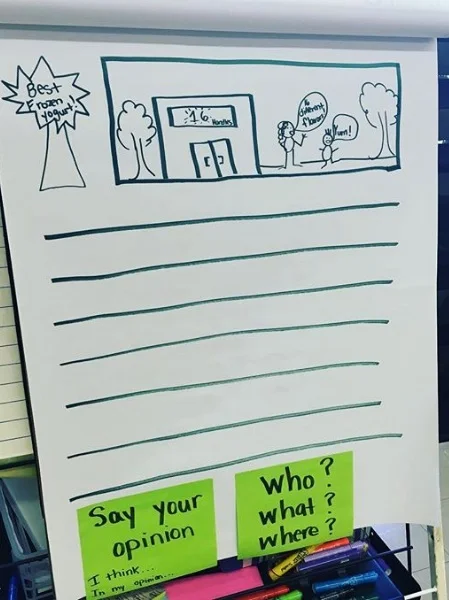 Best
Frozen
yogurt!
16
Handles
16
different
flavors!
Yum!
Say your
opinion
I think...
In my opinion...
Who?
what?
where?